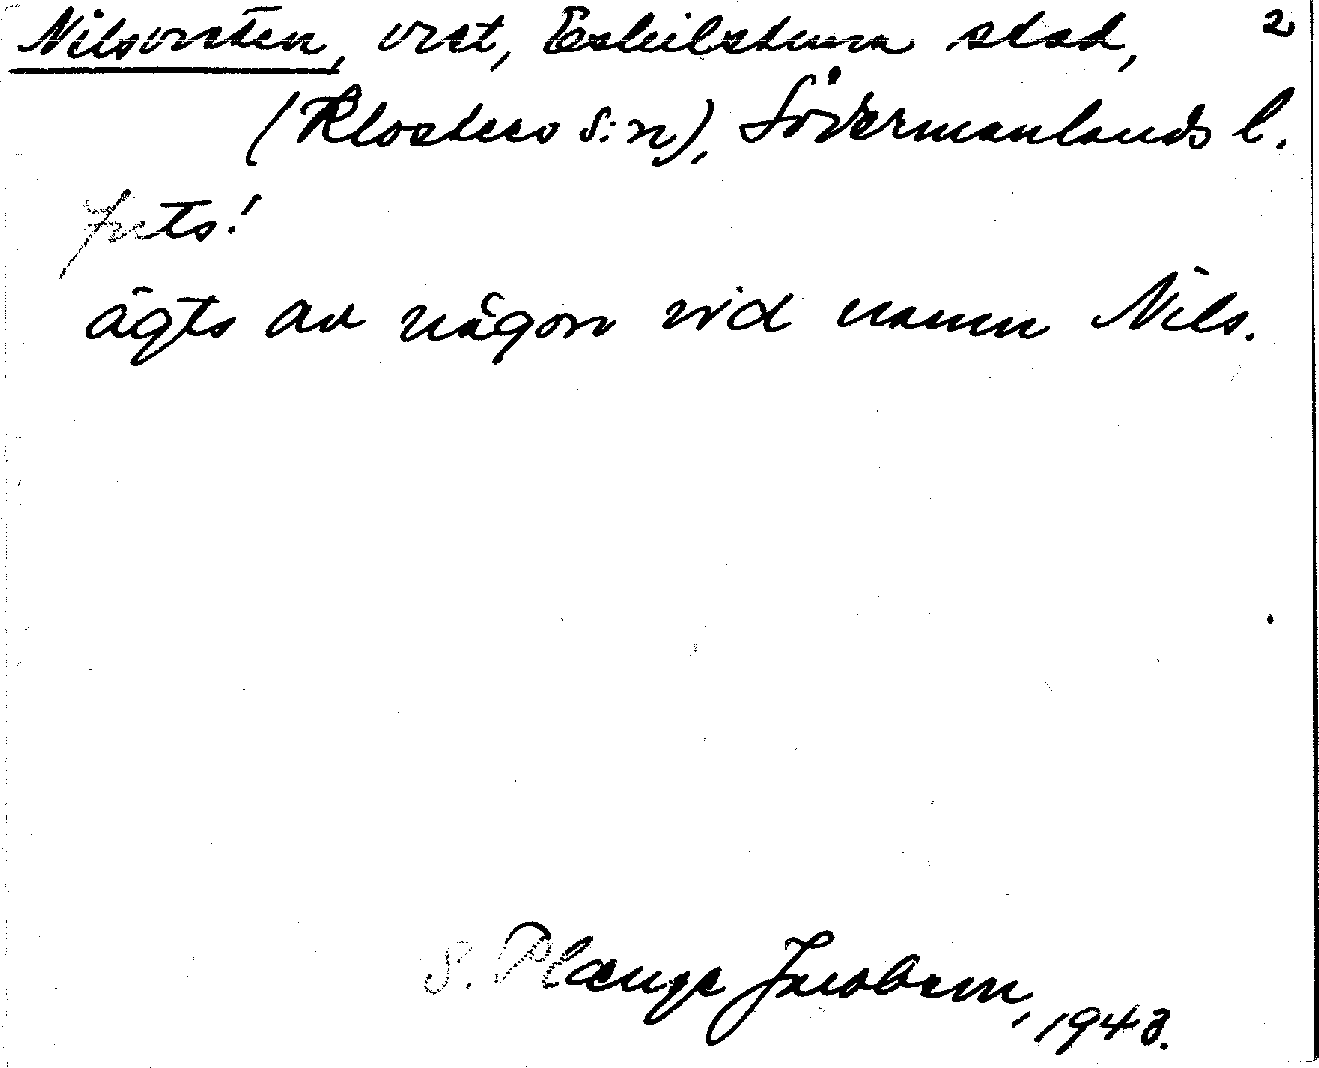 Nilsvreten, vret, Eskilstuna stad, 2
(Klosters s:n), Södermanlands l.
ägts av någon vid namn Nils.
S. Plænge Jacobson, 1943.